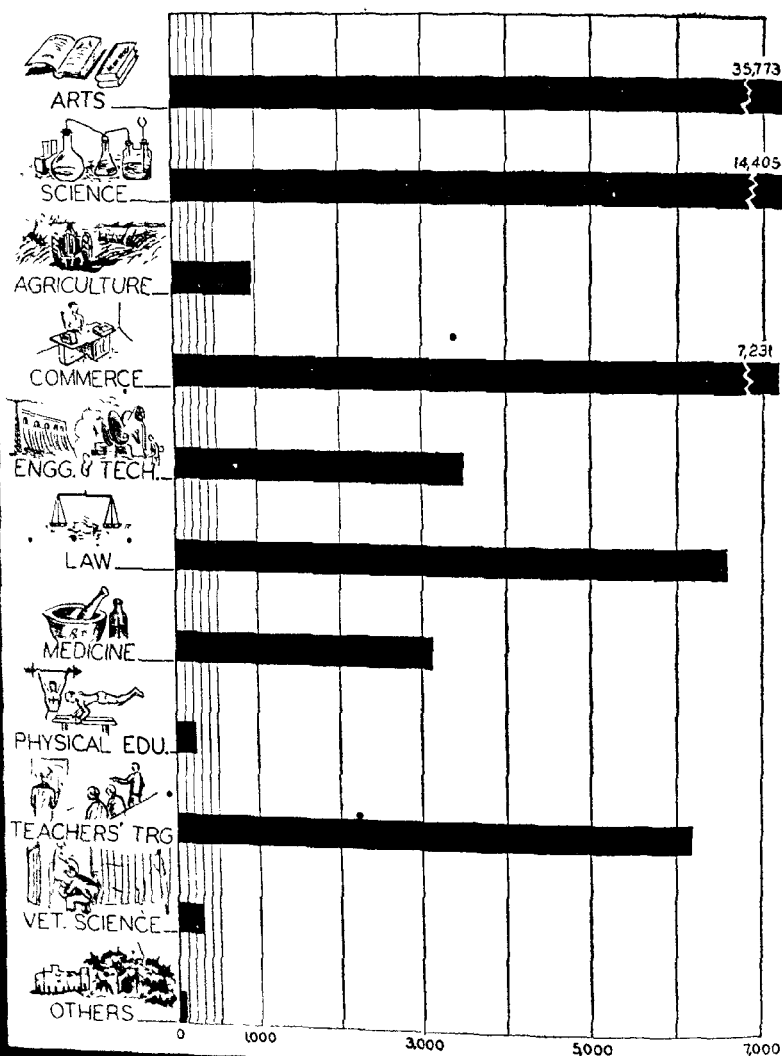 35,773
ARTS
14,405
SCIENCE
AGRICULTURE
7,231
COMMERCE
ENGG. & TECH.
LAW
MEDICINE
PHYSICAL EDU.
TEACHERS' TRG
VET. SCIENCE
OTHERS
0 1,000 3,000 5,000 7,000